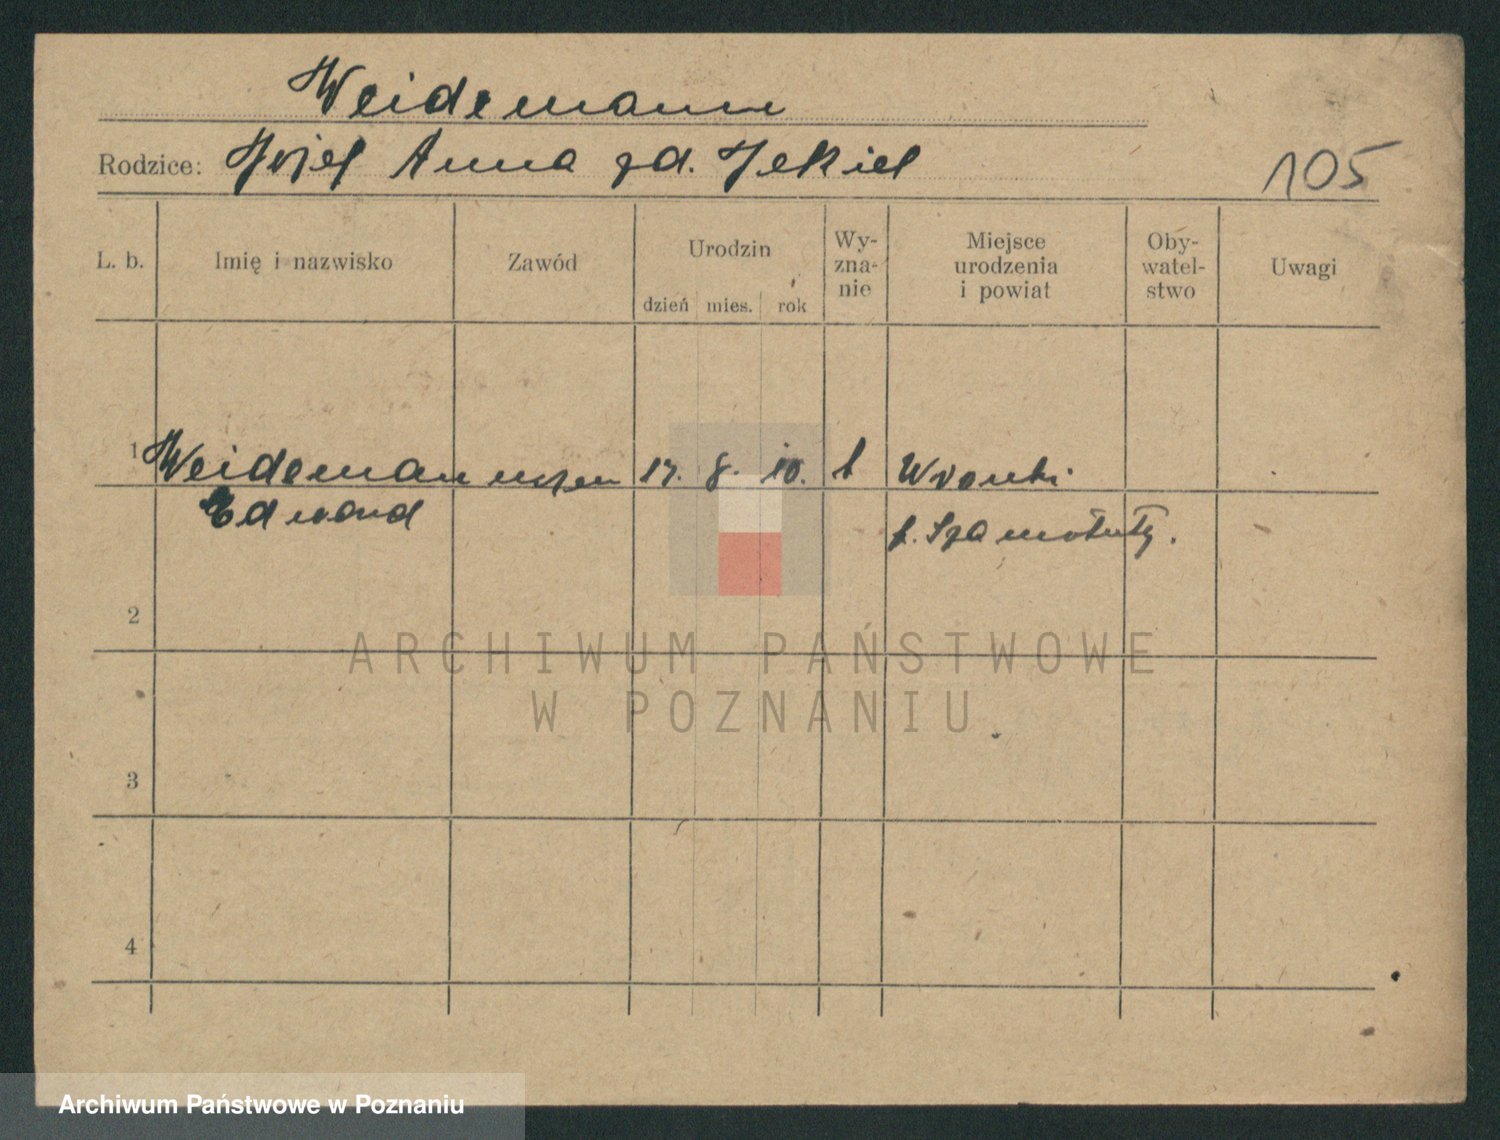 Weidemann
Rodzice: Józef Anna zd. Jekiel
105
L. b. Imię i nazwisko Zawód Urodzin dzień mies. rok Wy-zna-nie Miejsce urodzenia i powiat Oby-watel-stwo Uwagi
1 Weideman 17. 8. 10. Wronki
Edward p. Szamotuły.
2
ARCHIWUM PAŃSTWOWE
W POZNANIU
3
4
Archiwum Państwowe w Poznaniu